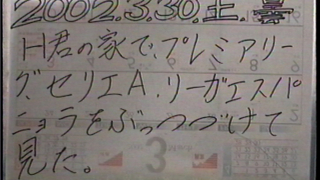 2002.3.30.土.曇
H君の家で、プレミアリー
グ、セリエA.リーガエスパ
ニョラをぶっつづけて
見た。
3